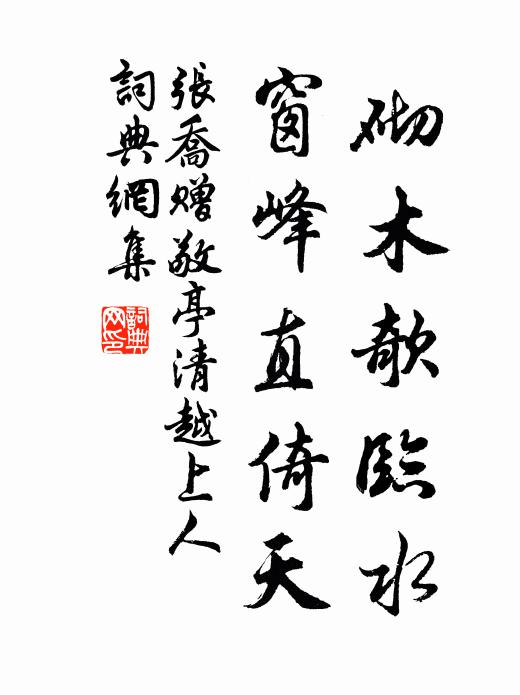 砌木欹臨水
窗峰直倚天
張喬贈敬亭清越上人
詞典網集
詞典网印